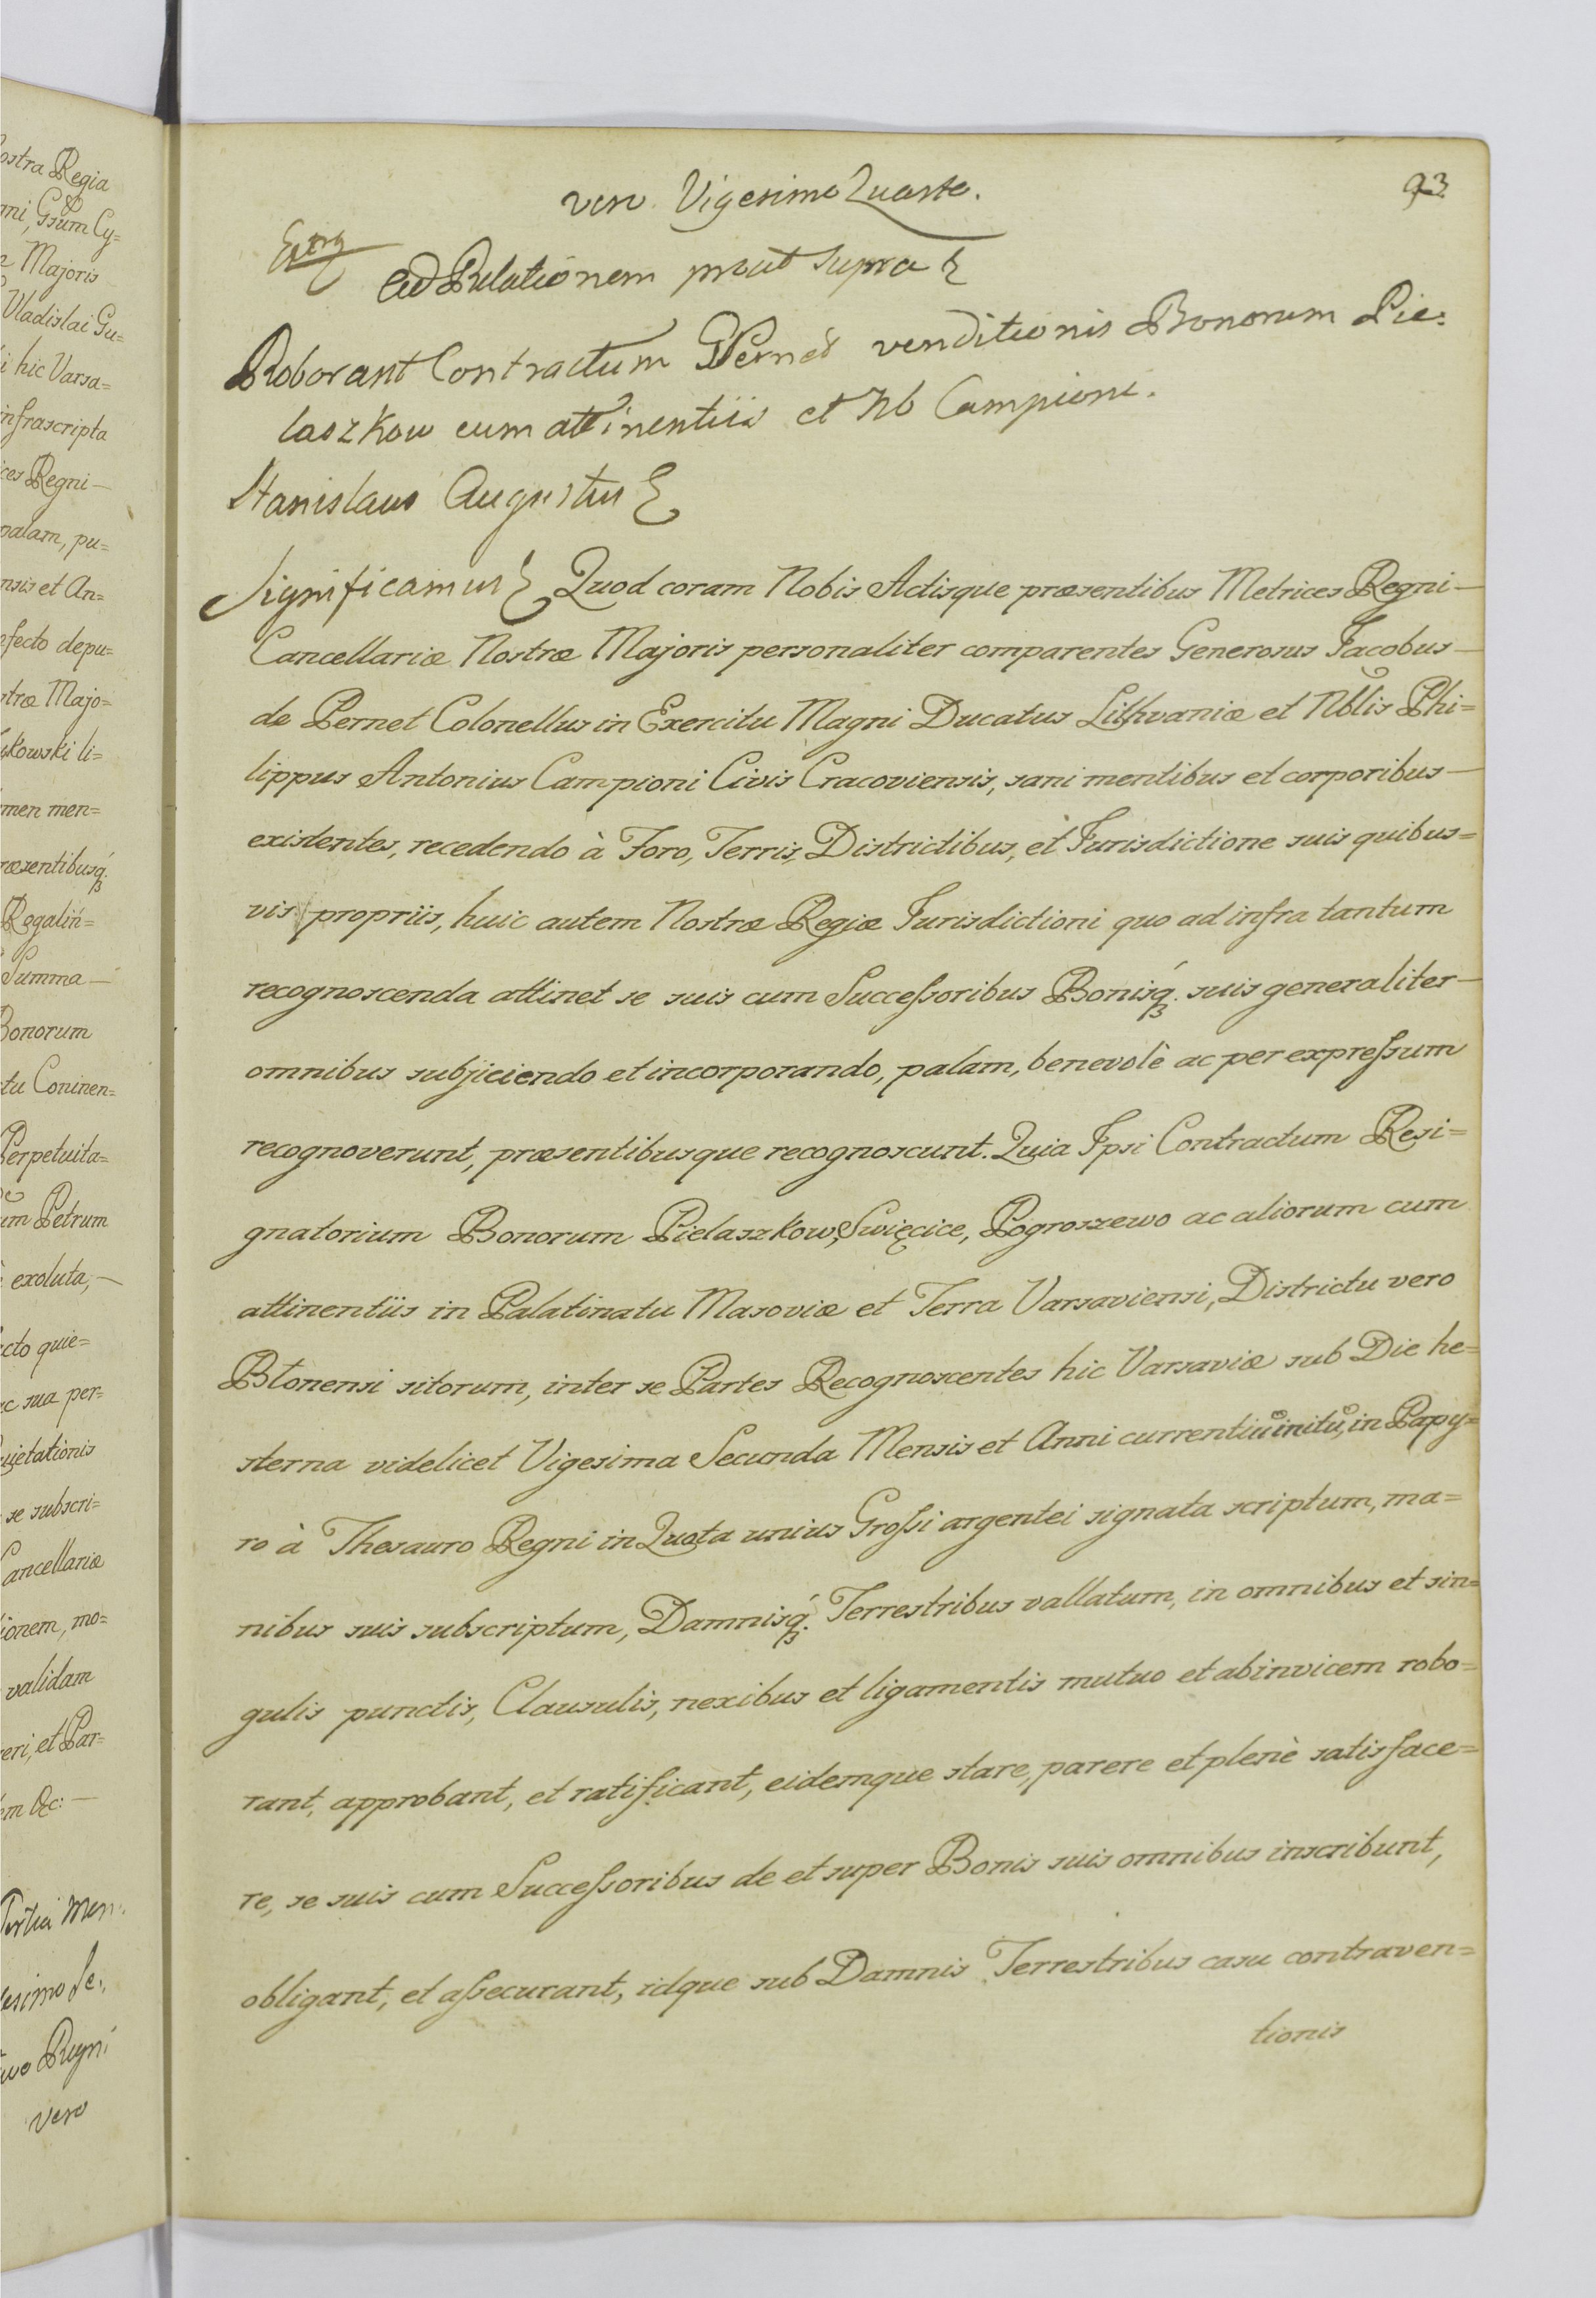 ostra Regia
mni, Gsum Cy=
Majoris
Vladislai Gu=
i hic Varsa=
infrascripta
ces Regni—
palam, pu=
nsis et An=
efecto depu=
stræ Majo=
kowski li=
men men=
ræsentibusq́
Rogaliń=
Summa—
Bonorum
tu Coninen=
Perpetuita=
um Petrum
exoluta,—
cto quie=
c sua per=
uietationis
se subscri=
Cancellariæ
ionem, mo=
validam
eri, et Par=
em &c:—
Tertia Men:
esimo Se:
Regni
vero
93
vero Vigesima Quarta.
Extrs
Ad Relationem prout supra
Roborant Contractum G Pernet venditionis Bonorum Pie:
laszkow cum attinentiis et Nb Campioni.
Stanislaus Augustus
Significamus Quod coram Nobis Actisque præsentibus Metrices Regni—
Cancellariæ Nostræ Majoris personaliter comparentes Generosus Jacobus—
de Pernet Colonellus in Exercitu Magni Ducatus Lithvaniæ et Nblis Phi=
lippus Antonius Campioni Civis Cracoviensis, sani mentibus et corporibus—
existentes, recedendo à Foro, Terris, Districtibus, et Jurisdictione suis quibus=
vis propriis, huic autem Nostræ Regiæ Jurisdictioni quo ad infra tantum
recognoscenda attinet se suis cum Successoribus Bonisq́ suis generaliter—
omnibus subjiciendo et incorporando, palam, benevolè ac per expressum
recognoverunt, præsentibusque recognoscunt. Quia Ipsi Contractum Resi=
gnatorium Bonorum Pielaszkow, Swięcice, Pogroszewo ac aliorum cum
attinentiis in Palatinatu Masoviæ et Terra Varsaviensi, Districtu vero
Błonensi sitorum, inter se Partes Recognoscentes hic Varsaviæ sub Die he=
sterna videlicet Vigesima Secunda Mensis et Anni currentiũ initũ, in Papy=
ro à Thesauro Regni in Quota unius Grossi argentei signata scriptum, ma=
nibus suis subscriptum, Damnisq́ Terrestribus vallatum, in omnibus et sin=
gulis punctis, Clausulis, nexibus et ligamentis mutuo et abinvicem robo=
rant, approbant, et ratificant, eidemque stare, parere et plenè satisface=
re, se suis cum Successoribus de et super Bonis suis omnibus inscribunt,
obligant, et assecurant, idque sub Damnis Terrestribus casu contraven=
tionis